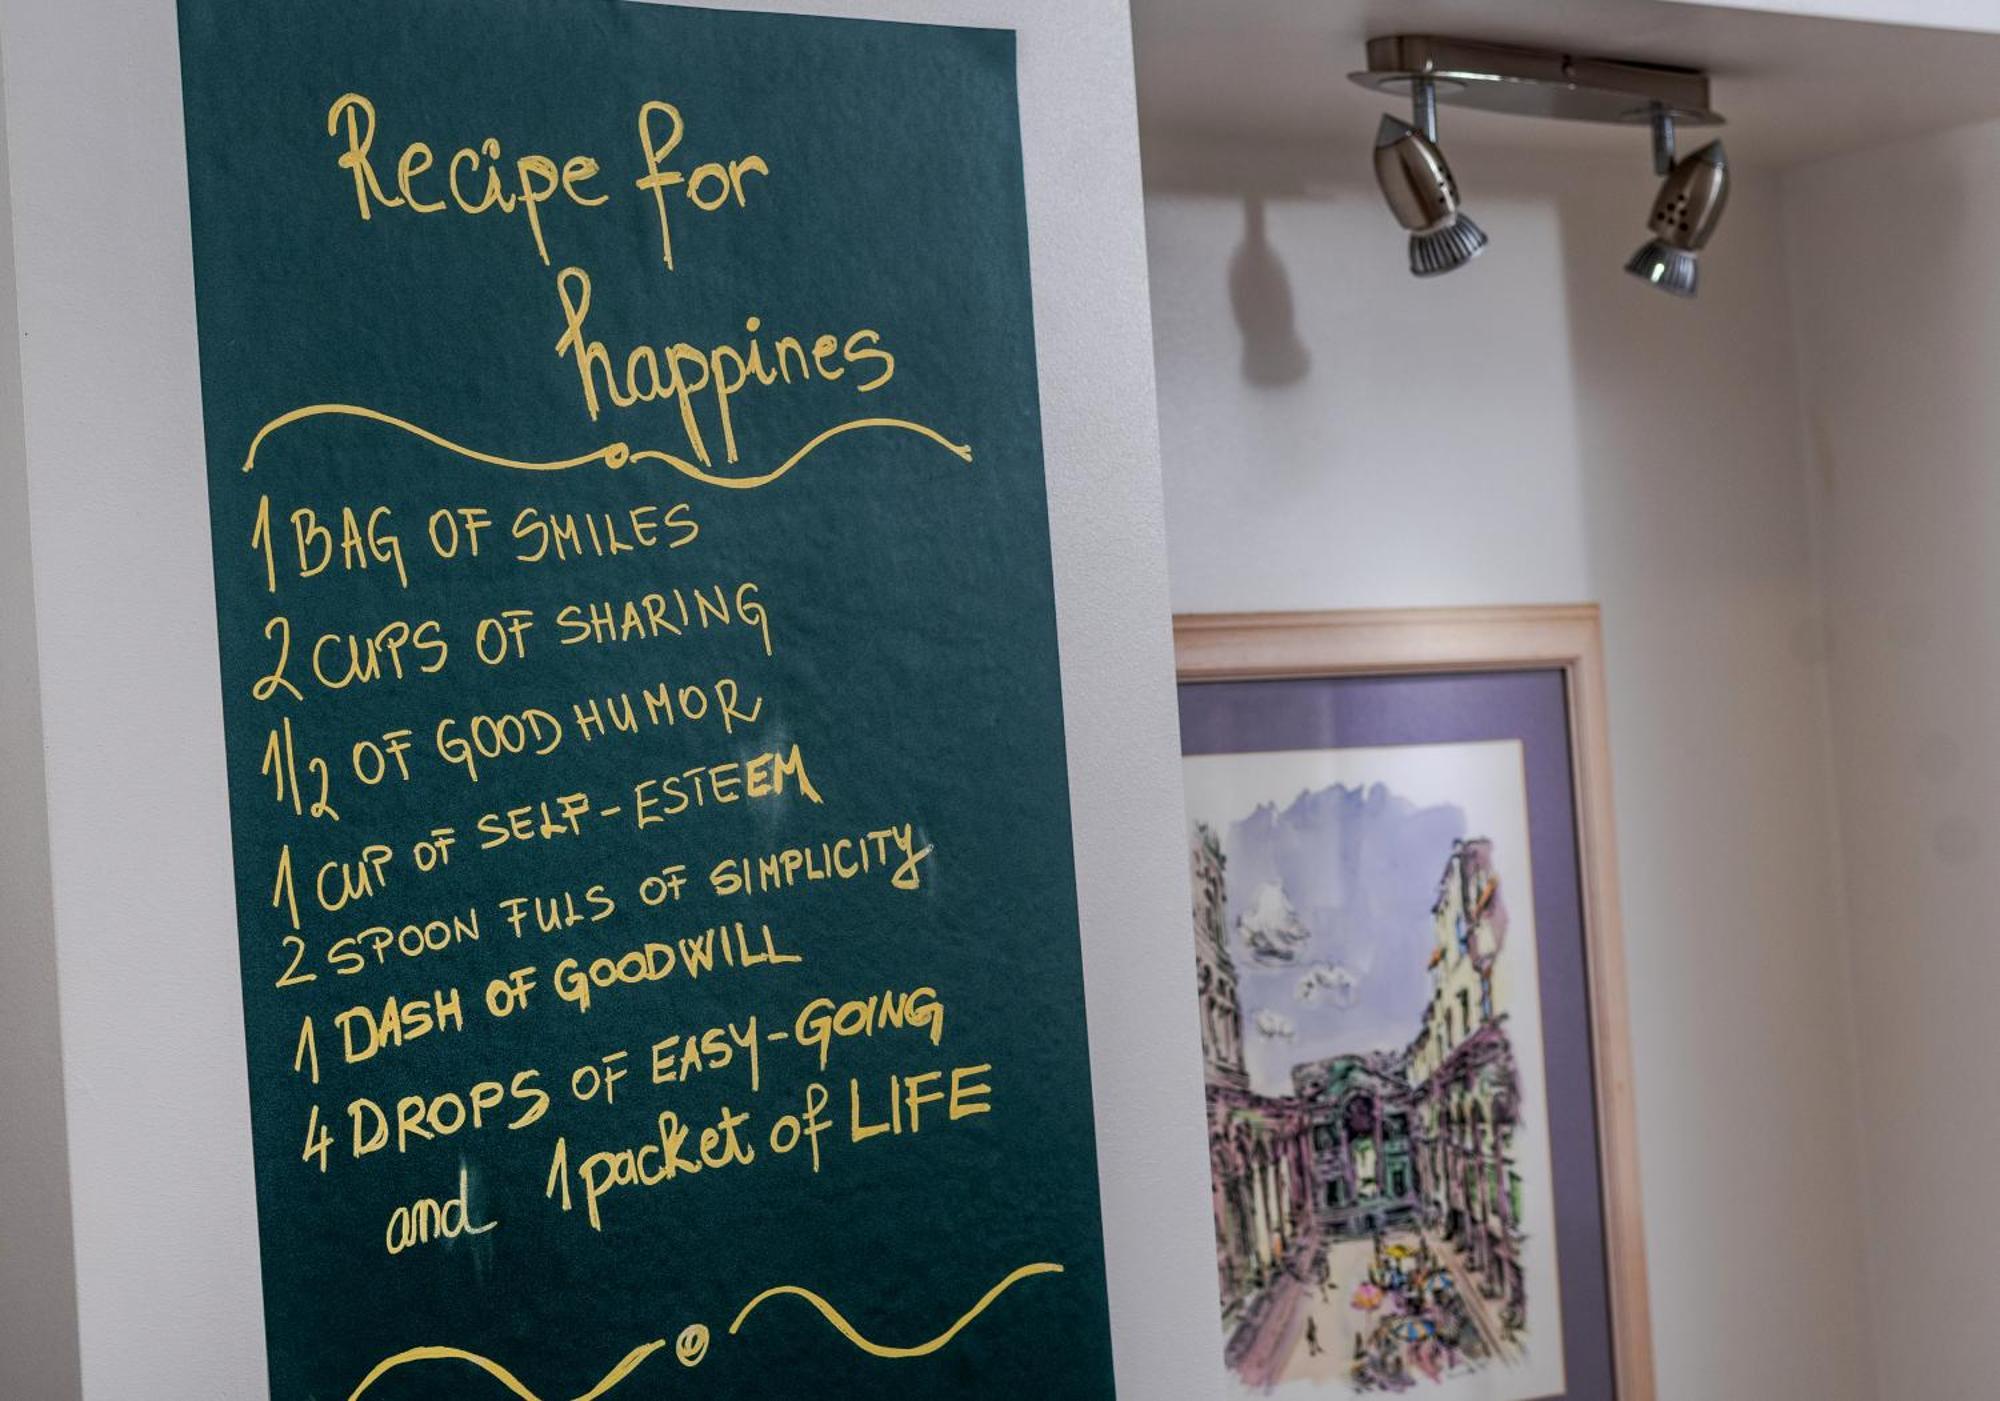 Recipe for
happines
1 BAG OF SMILES
2 CUPS OF SHARING
1/2 OF GOOD HUMOR
1 CUP OF SELF-ESTEEM
2 SPOON FULS OF SIMPLICITY
1 DASH OF GOODWILL
4 DROPS OF EASY-GOING
and 1 packet of LIFE